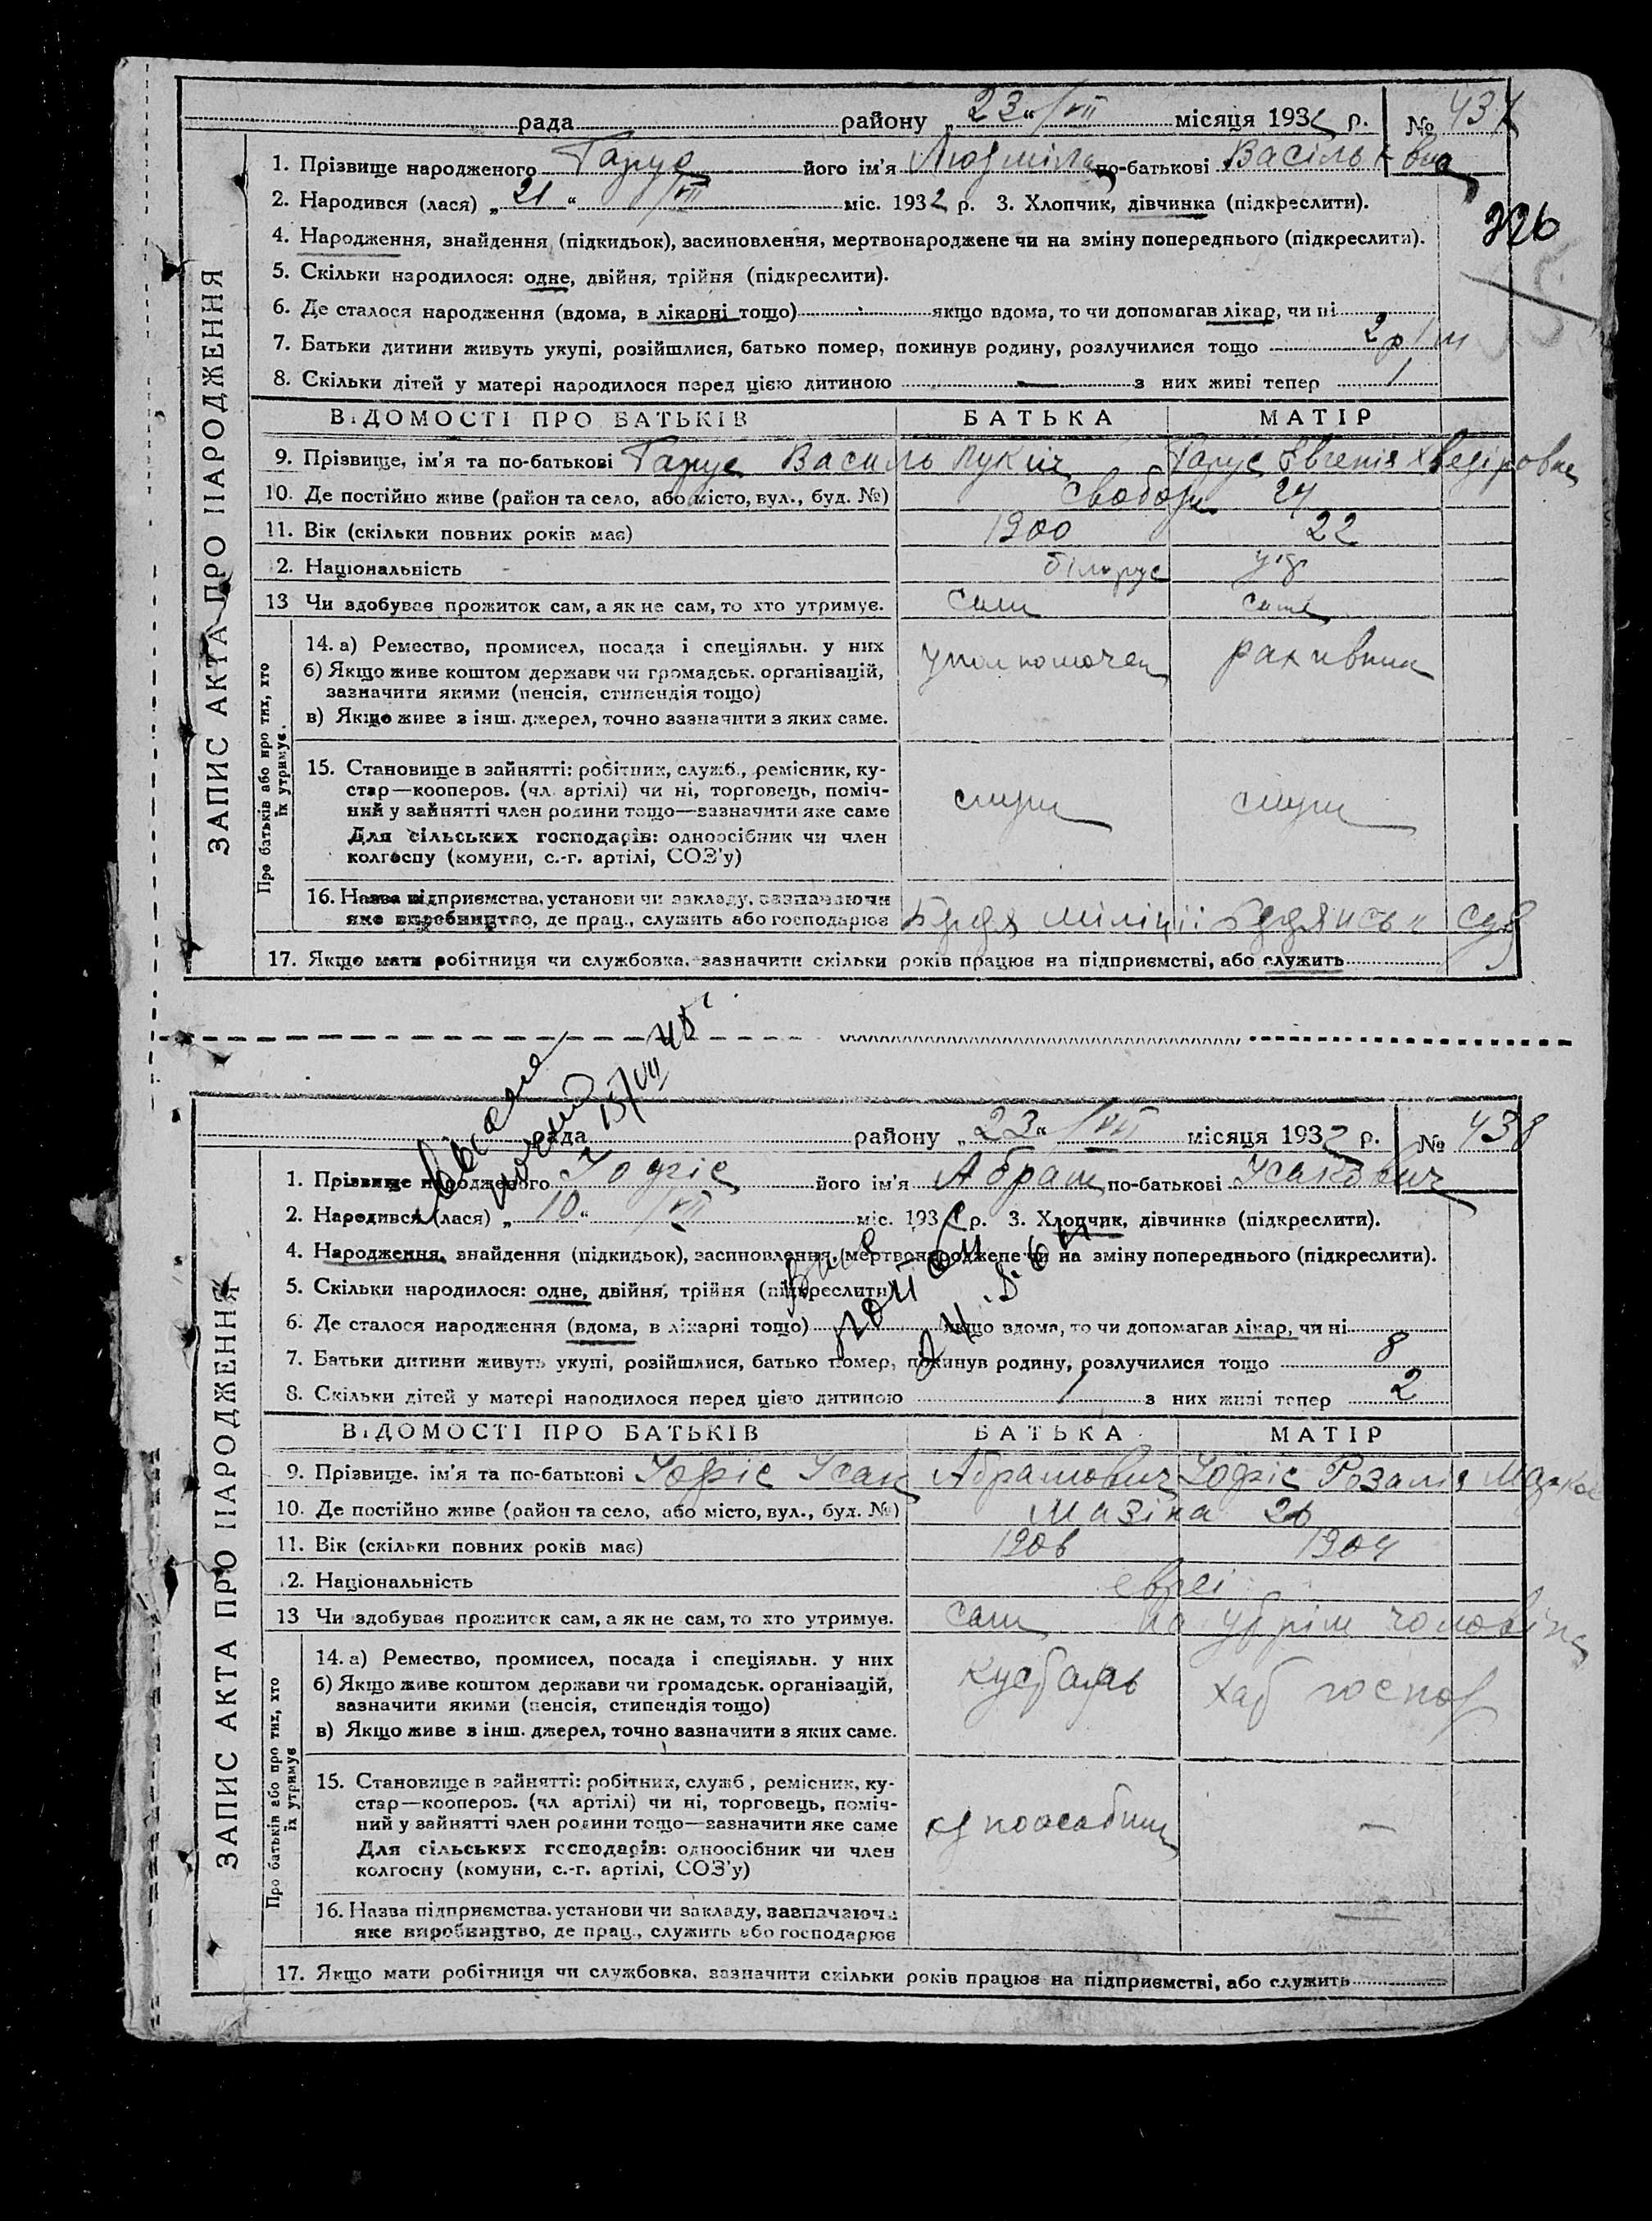 рада района „23“ /VII місяця 1932 р. № 437
1. Прізвище народженого Гарус його ім'я Людміла по-батькові Василь вна
2. Народився (лася) „21“ /VII міс. 1932 р. 3. Хлопчик, дівчинка (підкреслити).
326
4. Народження, знайдення (підкидьок), засиновлення, мертвонароджене чи на зміну попереднього (підкреслити).
5. Скільки народилося: одне, двійня, трійня (підкреслити).
6. Де сталося народження (вдома, в лікарні тощо) якщо вдома, то чи допомагав лікар, чи ні
7. Батьки дитини живуть укупі, розійшлися, батько помер, покинув родину, розлучилися тощо 2 р
8. Скільки дітей у матері народилося перед цією дитиною — з них живі тепер 1
ВІДОМОСТІ ПРО БАТЬКІВ БАТЬКА МАТІР
9. Прізвище, ім'я та по-батькові Гарус Василь Лукич Гарус Євгенія Хведіровна
10. Де постійно живе (район та село, або місто, вул., буд. №) Свободи 24
11. Вік (скільки повних років має) 1900 22
12. Національність білорус укр
13 Чи здобуває прожиток сам, а як не сам, то хто утримує. сам сама
14. а) Ремество, промисел, посада і спеціяльн. у них
б) Якщо живе коштом держави чи громадськ. організацій,
зазначити якими (пенсія, стипендія тощо)
в) Якщо живе з інш. джерел, точно зазначити з яких саме.
рахівник
15. Становище в зайнятті: робітник, служб., ремісник, ку-
стар—кооперов. (чл. артілі) чи ні, торговець, поміч-
ний у зайнятті член родини тощо—зазначити яке саме
Для сільських господарів: одноосібник чи член
колгоспу (комуни, с.-г. артілі, СОЗ'у)
служ служ
16. Назва підприємства, установи чи закладу, зазначаючи
яке виробництво, де прац., служить або господарює міліції суд
17. Якщо мати робітниця чи службовка, зазначити скільки років працює на підприємстві, або служить
ЗАПИС АКТА ПРО НАРОДЖЕННЯ
Про батьків або про тих, хто
їх утримує.
15/VII 45
рада району „23“ /VII місяця 1932 р. № 438
1. Прізвище народженого Іофіс його ім'я Абрам по-батькові Ісакович
2. Народився (лася) „10“ /VII міс. 193 р. 3. Хлопчик, дівчинка (підкреслити).
4. Народження, знайдення (підкидьок), засиновлення, мертвонароджене чи на зміну попереднього (підкреслити).
5. Скільки народилося: одне, двійня, трійня (підкреслити)
6. Де сталося народження (вдома, в лікарні тощо) якщо вдома, то чи допомагав лікар, чи ні
7. Батьки дитини живуть укупі, розійшлися, батько помер, покинув родину, розлучилися тощо 8
8. Скільки дітей у матері народилося перед цією дитиною 1 з них живі тепер 2
ВІДОМОСТІ ПРО БАТЬКІВ БАТЬКА МАТІР
9. Прізвище, ім'я та по-батькові Іофіс Ісак Абрамович Іофіс Розалія
10. Де постійно живе (район та село, або місто, вул., буд. №) Мазіна 26
11. Вік (скільки повних років має) 1906 1904
12. Національність євреі
13 Чи здобував прожиток сам, а як не сам, то хто утримує. сам на утрім чоловіка
14. а) Ремество, промисел, посада і спеціяльн. у них
б) Якщо живе коштом держави чи громадськ. організацій,
зазначити якими (пенсія, стипендія тощо)
в) Якщо живе з інш. джерел, точно зазначити з яких саме.
кустарь хат господ
15. Становище в зайнятті: робітник, служб., ремісник, ку-
стар—кооперов. (чл артілі) чи ні, торговець, поміч-
ний у зайнятті член родини тощо—зазначити яке саме
Для сільських господарів: одноосібник чи член
колгоспу (комуни, с.-г. артілі, СОЗ'у)
одноособник —
16. Назва підприємства, установи чи закладу, зазначаючи
яке виробництво, де прац., служить або господарює —
17. Якщо мати робітниця чи службовка, зазначити скільки років працює на підприємстві, або служить
ЗАПИС АКТА ПРО НАРОДЖЕННЯ
Про батьків або про тих, хто
їх утримує